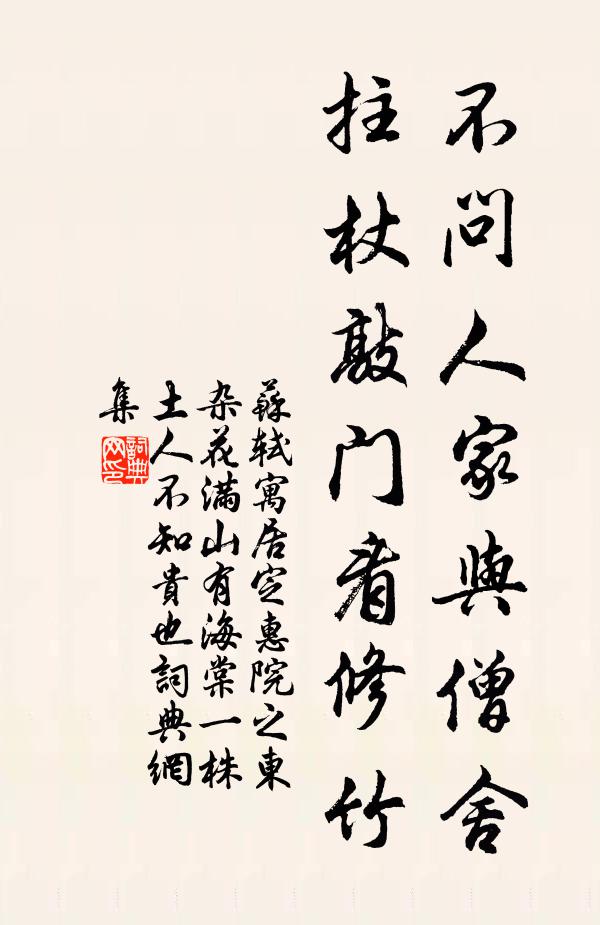 不問人家與僧舍
拄杖敲門看修竹
蘇軾寓居定惠院之東
杂花滿山有海棠一株
土人不知貴也詞典網
集
詞典網印